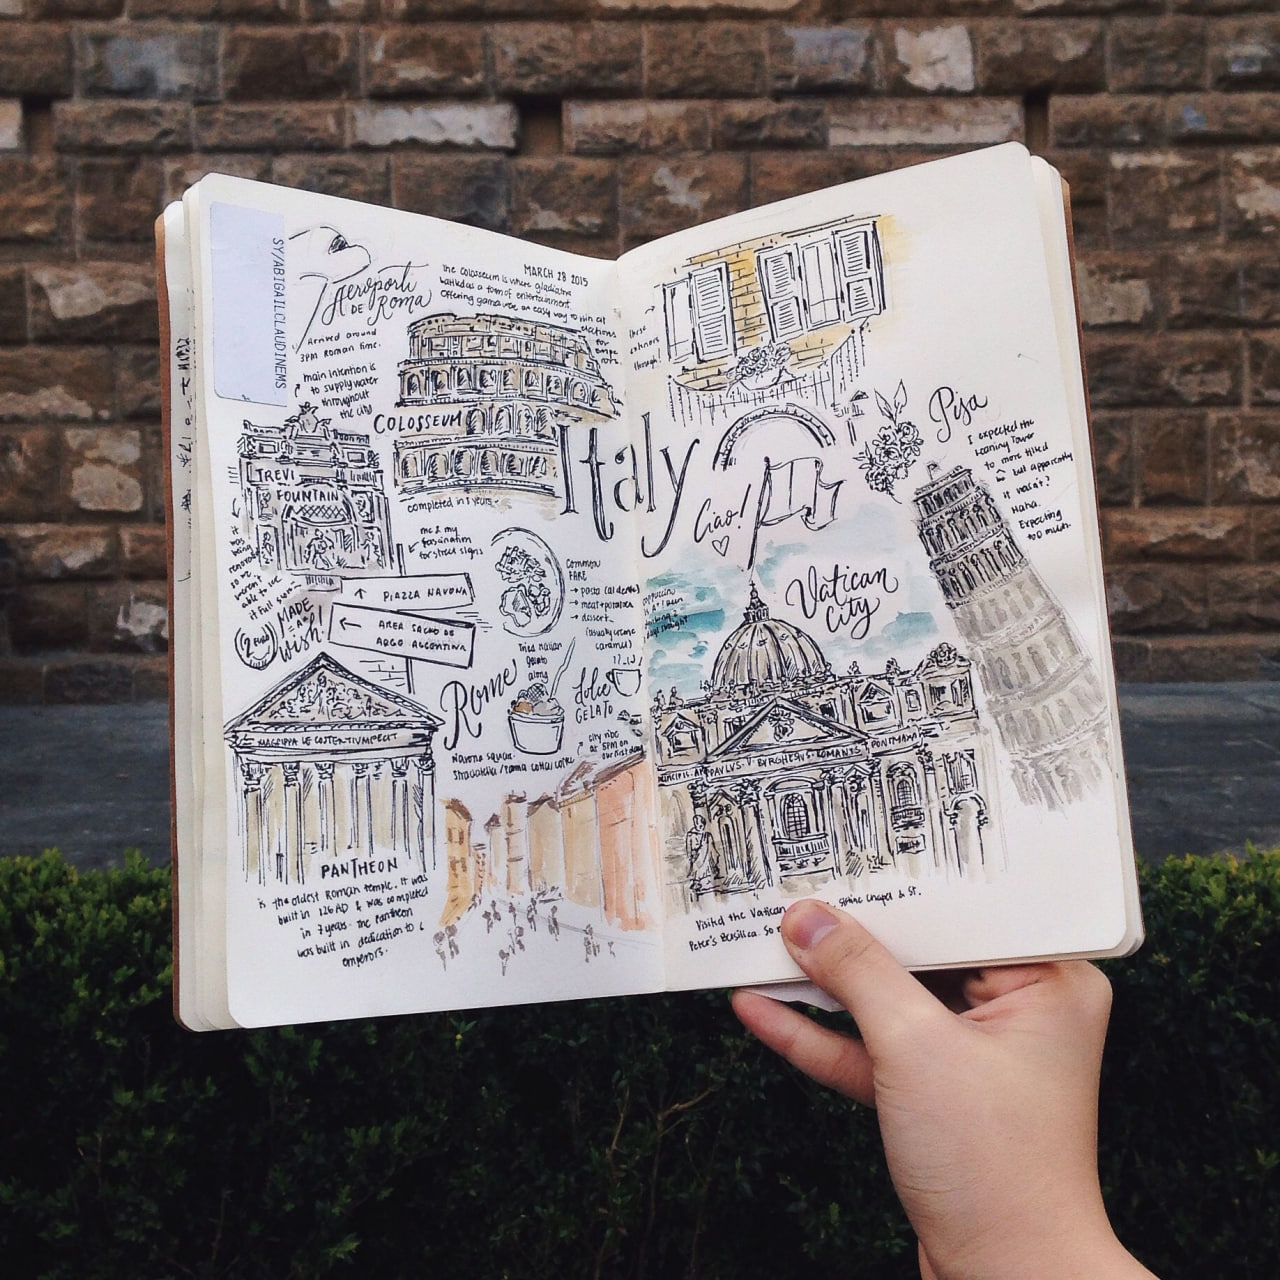 SY/ABIGAILCLAUDINEMS
Aeroporti
DE Roma
Arrived around
3PM Roman time.
MARCH 28 2015
The Colosseum is where gladiators
as a form of entertainment.
Offering games was an easy way to win at
elections
for
COLOSSEUM
completed in 8 years.
main intention is
to supply water
throughout
the city
TREVI
FOUNTAIN
it
was
being
so we
weren't
able to see
it full
MADE
A
wish!
me & my
fascination
for street signs
PIAZZA NAVONA
AREA SACRO DE
ARGO ARGENTINA
COMMON
FARE
pasta (al dente)
meat + potatoes
dessert
(usually creme
caramel)
Tried Italian
gelato
along
Rome
Dolce
GELATO
Navona square.
Stracciatella / Panna cotta
city ride
at 5PM on
our first day
MAGRIPPA LE COSTERTIUMFECIT
PANTHEON
is the oldest Roman temple. It was
built in 126 AD & was completed
in 7 years. The Pantheon
was built in dedication to
emperors.
Italy
these
exteriors
though!
Ciao!
Pisa
I expected the
Leaning Tower
to more tilted
but apparently
it wasn't?
Haha.
Expecting
too much.
Vatican
City
cappuccino
straight
PAVLVS V BVRGHESVS ROMANVS PONTMAXA
Visited the Vatican Chapel & St.
Peter's Basilica. So